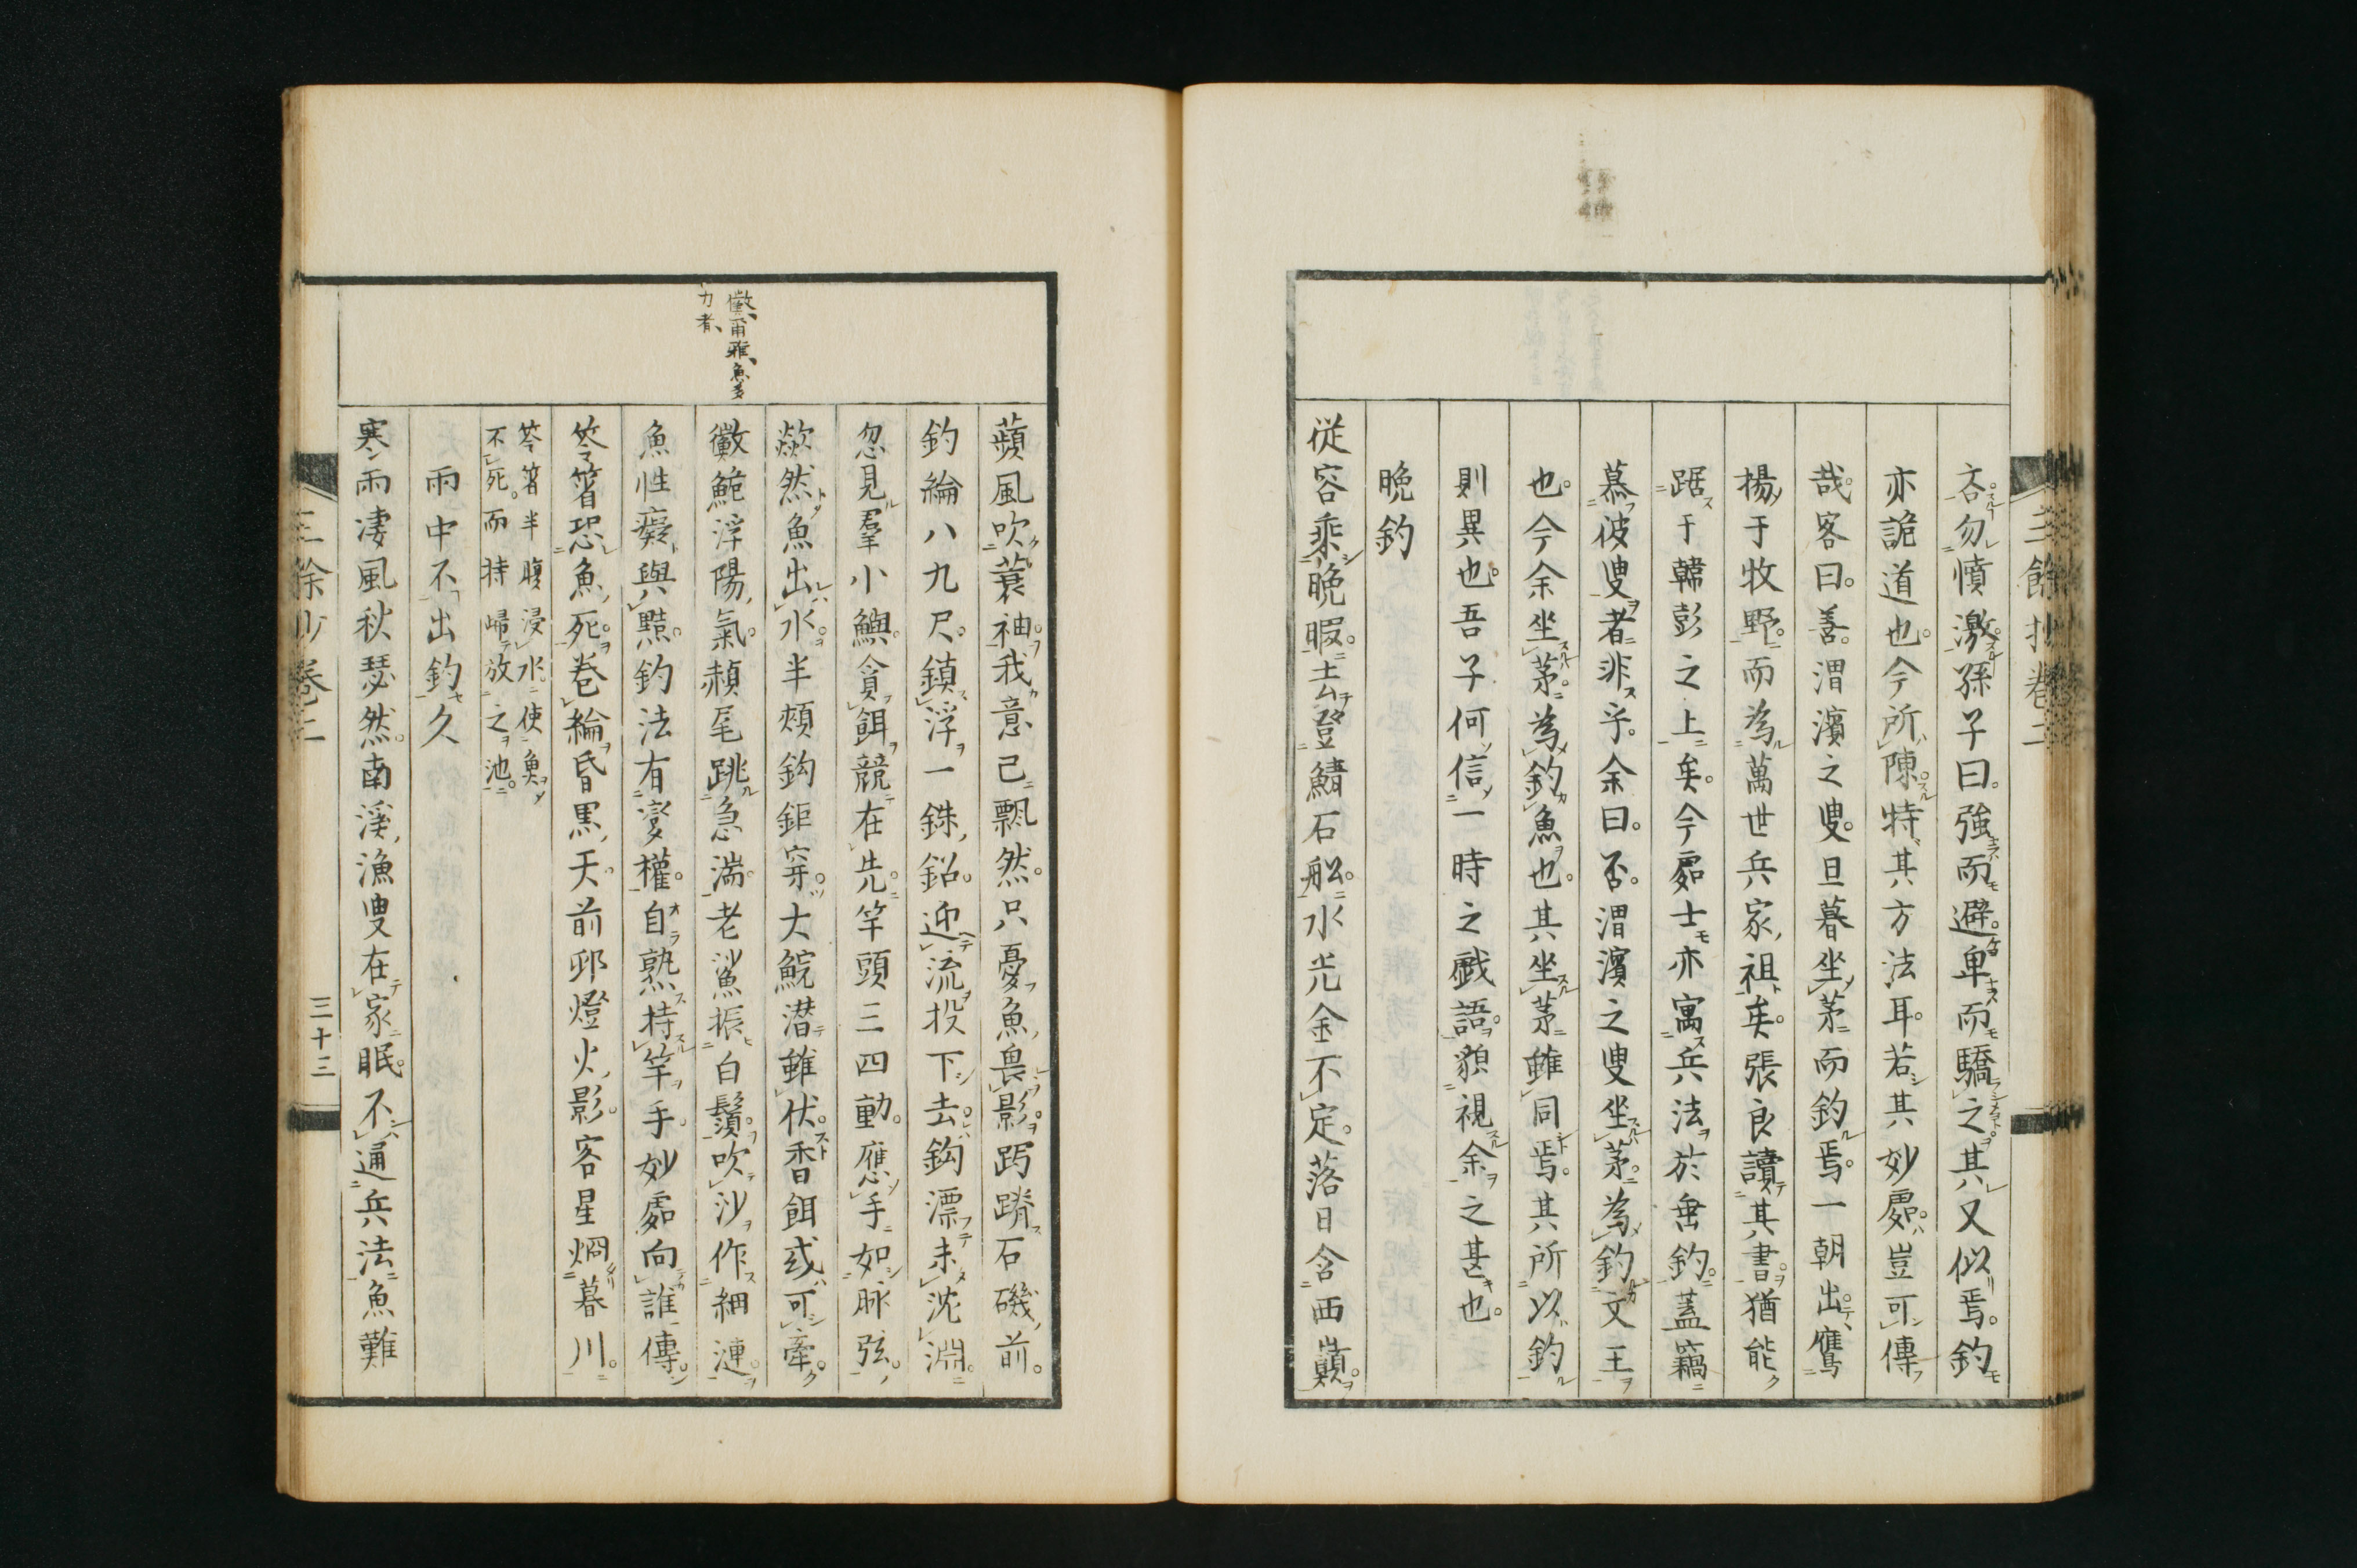 三餘抄卷二
吝勿憤激孫子曰強而避卑而驕之其又似焉釣
亦詭道也今所陳特其方法耳若其妙處豈可傳
哉客曰善渭濱之叟旦暮坐茅而釣焉一朝出鷹
揚于牧野而為萬世兵家祖矣張良讀其書猶能
踞于韓彭之上矣今處士亦寓兵法於垂釣蓋竊
慕彼叟者非乎余曰否渭濱之叟坐茅為釣文王
也今余坐茅為釣魚也其坐茅雖同焉其所以釣
則異也吾子何信一時之戲語貌視余之甚也
晚釣
從容乘晚暇去登鯖石舩水光金不定落日含西巔
蘋風吹蓑袖我意已飄然只憂魚畏影跼蹐石磯前
釣綸八九尺鎮浮一銖鉛迎流投下去鈎漂未沈淵
忽見羣小鱮貪餌競在先竿頭三四動應手如脉弦
歘然魚出水半頰鈎鉅穿大鯇潜雖伏香餌或可牽
鮠浮陽氣赬尾跳急湍老鯊振白鬚吹沙作細漣
魚性癡與黠釣法有變權自熟持竿手妙處向誰傳
笭箵恐魚死卷綸昏黒天前邨燈火影客星烱暮川
笭箵半腹浸水使魚
不死而持歸放之池
雨中不出釣久
寒雨凄風秋瑟然南溪漁叟在家眠不通兵法魚難
爾雅魚多
力者
三餘抄卷二
三十三